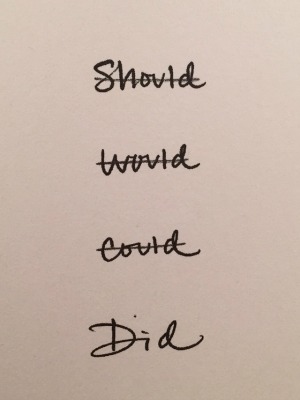 Should
Would
Could
Did